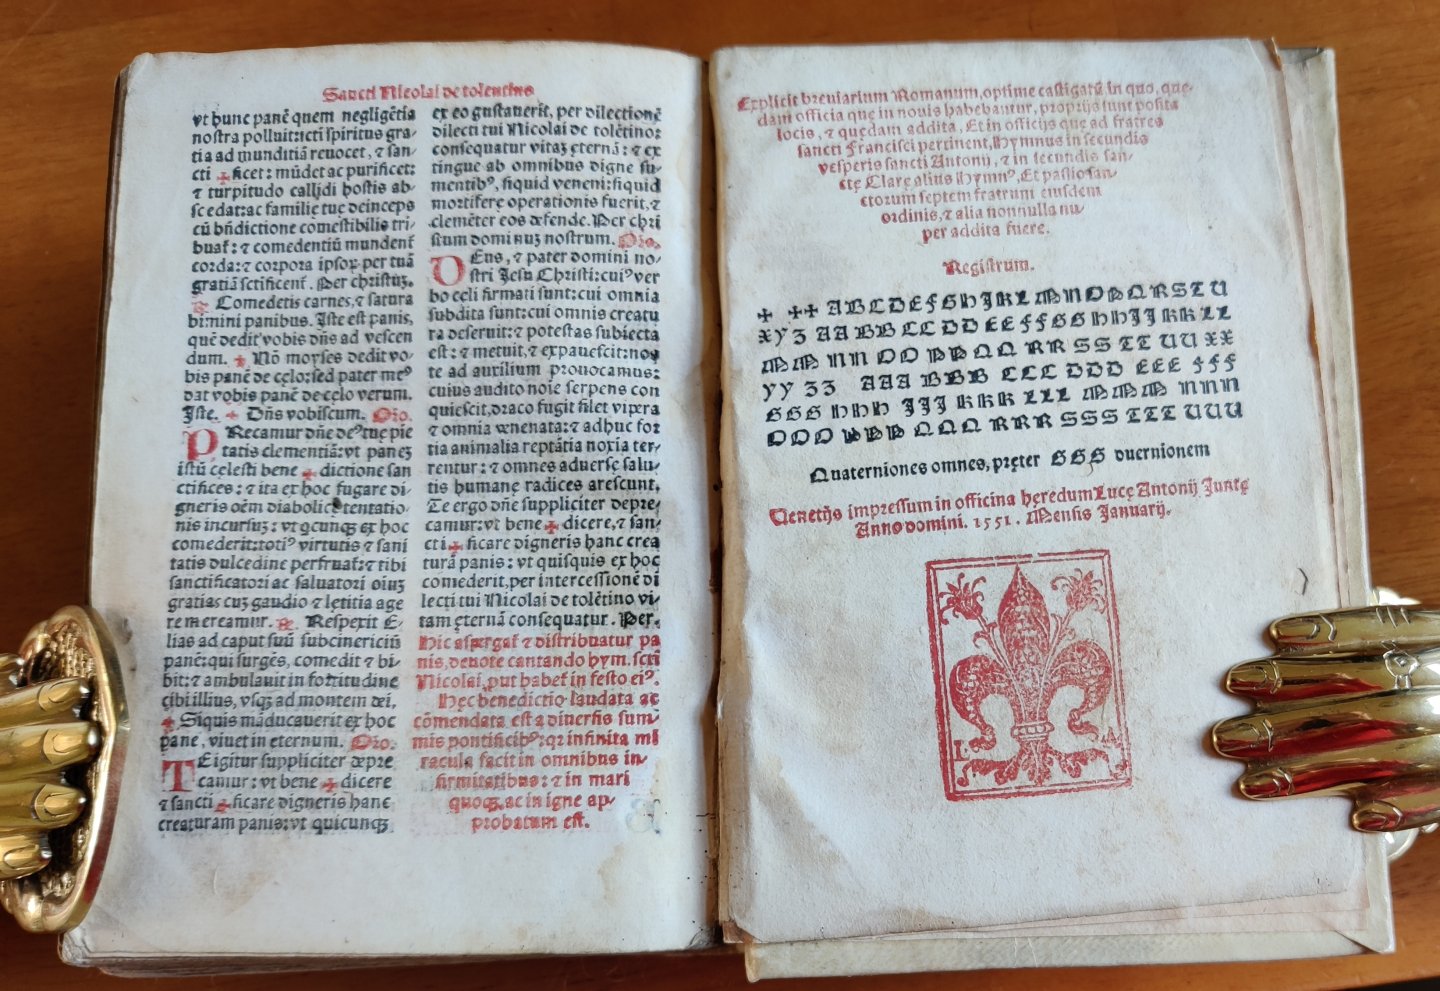 Sancti Nicolai de tolentino
vt hunc panē quem negligētia
nostra polluit: scti spiritus gra-
tia ad munditiā reuocet, ⁊ san-
cti ✠ ficet: mūdet ac purificet:
⁊ turpitudo callidi hostis ab-
scedat: ac familię tuę deinceps
cū bñdictione comestibilis tri-
buat̄: ⁊ comedentiū mundent̄
corda: ⁊ corpora ipsoꝝ per tuā
gratiā sctificent̄. Per christuꝫ.
℟ Comedetis carnes, ⁊ satura
bimini panibus. Iste est panis,
quē dedit vobis dñs ad vescen
dum. ✠ Nō moyses dedit vo-
bis panē de cęlo: sed pater meꝰ
dat vobis panē de cęlo verum.
Iste. ✠ Dñs vobiscum. Oro.
PRecamur dñe deꝰ tuę pie
tatis clementiā: vt paneꝫ
istū cęlesti bene ✠ dictione san
ctifices: ⁊ ita ex hoc fugare di-
gneris oēm diabolicę tentatio-
nis incursuꝫ: vt qcunqꝫ ex hoc
comederit: totiꝰ virtutis ⁊ sani
tatis dulcedine perfruat̄: ⁊ tibi
sanctificatori ac saluatori oiuꝫ
gratias cuꝫ gaudio ⁊ lętitia age
re mereamur. ℟. Respexit E-
lias ad caput suū subcinericiū
panē: qui surgēs, comedit ⁊ bi-
bit: ⁊ ambulauit in fortitudine
cibi illius, vsqꝫ ad montem dei.
✠ Siquis māducauerit ex hoc
pane, viuet in eternum. Oro.
TE igitur suppliciter depre
camur: vt bene ✠ dicere
⁊ sancti ✠ ficare digneris hanc
creaturam panis: vt quicunqꝫ
ex eo gustauerit, per dilectionē
dilecti tui Nicolai de tolētino:
consequatur vitaꝫ ęternā: ⁊ ex
tingue ab omnibus digne su-
mentibꝰ, siquid veneni: siquid
mortiferę operationis fuerit, ⁊
clemēter eos defende. Per chri
stum dominuꝫ nostrum. Oro.
DEus, ⁊ pater domini no-
stri Jesu Christi: cuiꝰ ver
bo cęli firmati sunt: cui omnia
subdita sunt: cui omnis creatu
ra deseruit: ⁊ potestas subiecta
est: ⁊ metuit, ⁊ expauescit: nos
te ad auxilium prouocamus:
cuius audito noīe serpens con
quiescit, draco fugit silet vipera
⁊ omnia venenata: ⁊ adhuc for
tia animalia reptātia noxia ter-
rentur: ⁊ omnes aduersę salu-
tis humanę radices arescunt.
Te ergo dñe suppliciter depre-
camur: vt bene ✠ dicere, ⁊ san-
cti ✠ ficare digneris hanc crea
turā panis: vt quisquis ex hoc
comederit, per intercessionē di
lecti tui Nicolai de tolētino vi-
tam ęternā consequatur. Per.
Hic aspergat̄ ⁊ distribuatur pa
nis, deuote cantando hym. scti
Nicolai, put habet̄ in festo eiꝰ.
Hęc benedictio laudata ac
cōmendata est a diuersis sum-
mis pontificibꝰ: qꝛ infinita mi
racula facit in omnibus in-
firmitatibus: ⁊ in mari
quoqꝫ, ac in igne ap-
probatum est.
Explicit breuiarium Romanum, optime castigatū in quo, quę-
dam officia quę in nouis habebantur, proprijs sunt posita
locis, ⁊ quędam addita, Et in officijs que ad fratres
sancti Francisci pertinent, Hymnus in secundis
vesperis sancti Antonij, ⁊ in secundis san-
ctę Clarę alius Hymnꝰ, Et passio san-
ctorum septem fratrum eiusdem
ordinis, ⁊ alia nonnulla nu-
per addita fuere.
Registrum.
✠ ✠✠ A B C D E F G H I K L M N O P Q R S T U
X Y Z AA BB CC DD EE FF GG HH II KK LL
MM NN OO PP QQ RR SS TT UU XX
YY ZZ AAA BBB CCC DDD EEE FFF
GGG HHH III KKK LLL MMM NNN
OOO PPP QQQ RRR SSS TTT UUU
Quaterniones omnes, pręter GGG duernionem
Venetijs impressum in officina hęredum Lucę Antonij Juntę
Anno domini. 1551. Mensis Januarij.
L A